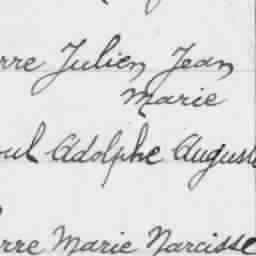 rre Julien Jean
Marie
oul Adolphe August
rre Marie Narcisse